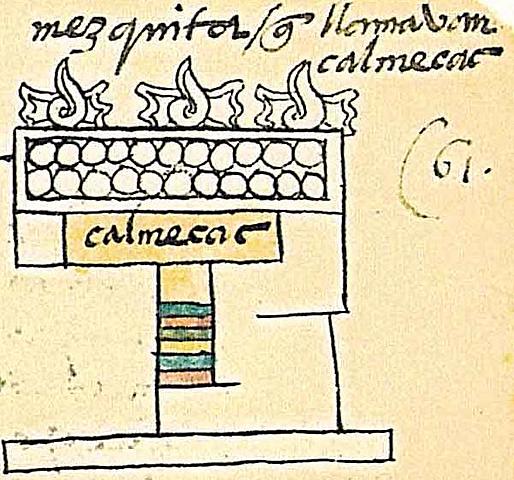 mezquita / q̃ llamavan
calmecac
(61.
calmecac